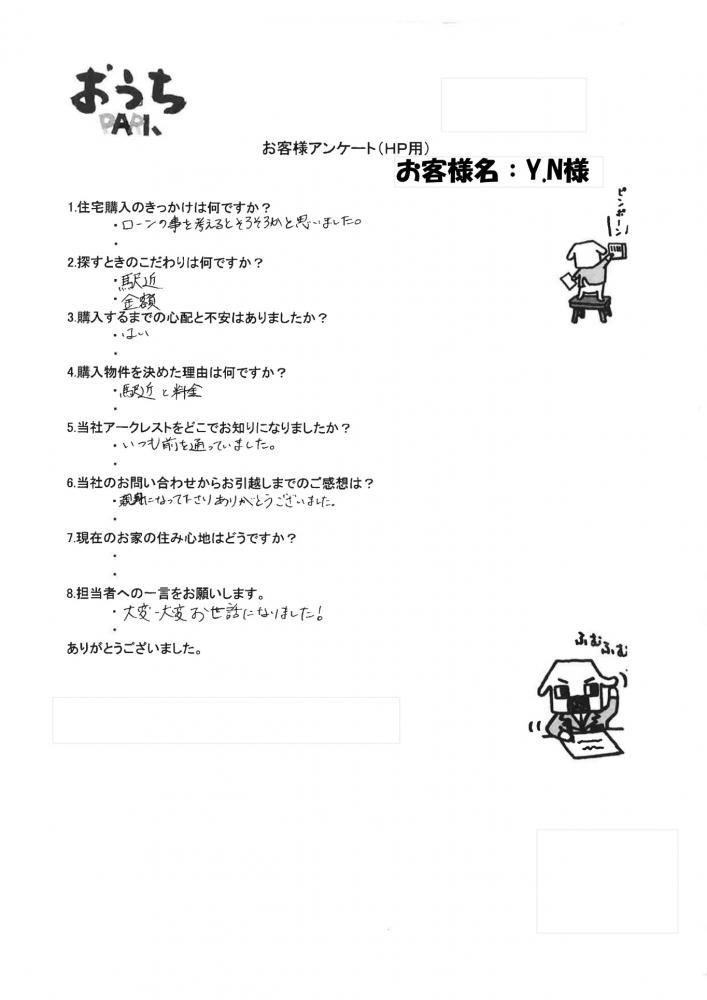 おうち
PARK
お客様アンケート(HP用)
お客様名:Y.N様
ピンポーン
1.住宅購入のきっかけは何ですか?
・ローンの事を考えるとそろそろかと思いました。
・
2.探すときのこだわりは何ですか?
・駅近
・金額
3.購入するまでの心配と不安はありましたか?
・はい
・
4.購入物件を決めた理由は何ですか?
・駅近と料金
・
5.当社アークレストをどこでお知りになりましたか?
・いつも前を通っていました。
・
6.当社のお問い合わせからお引越しまでのご感想は?
・親身になって下さりありがとうございました。
・
7.現在のお家の住み心地はどうですか?
・
・
8.担当者への一言をお願いします。
・大変-大変お世話になりました!
・
ありがとうございました。
ふむふむ